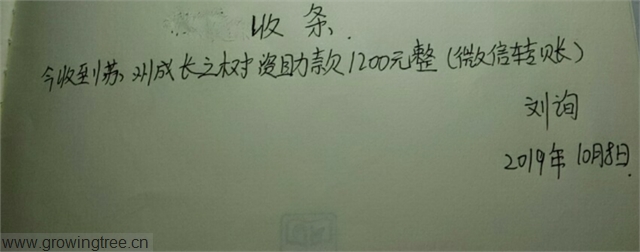 收条
今收到苏州成长之树资助款1200元整（微信转账）
刘询
2019年10月8日.
www.growingtree.cn